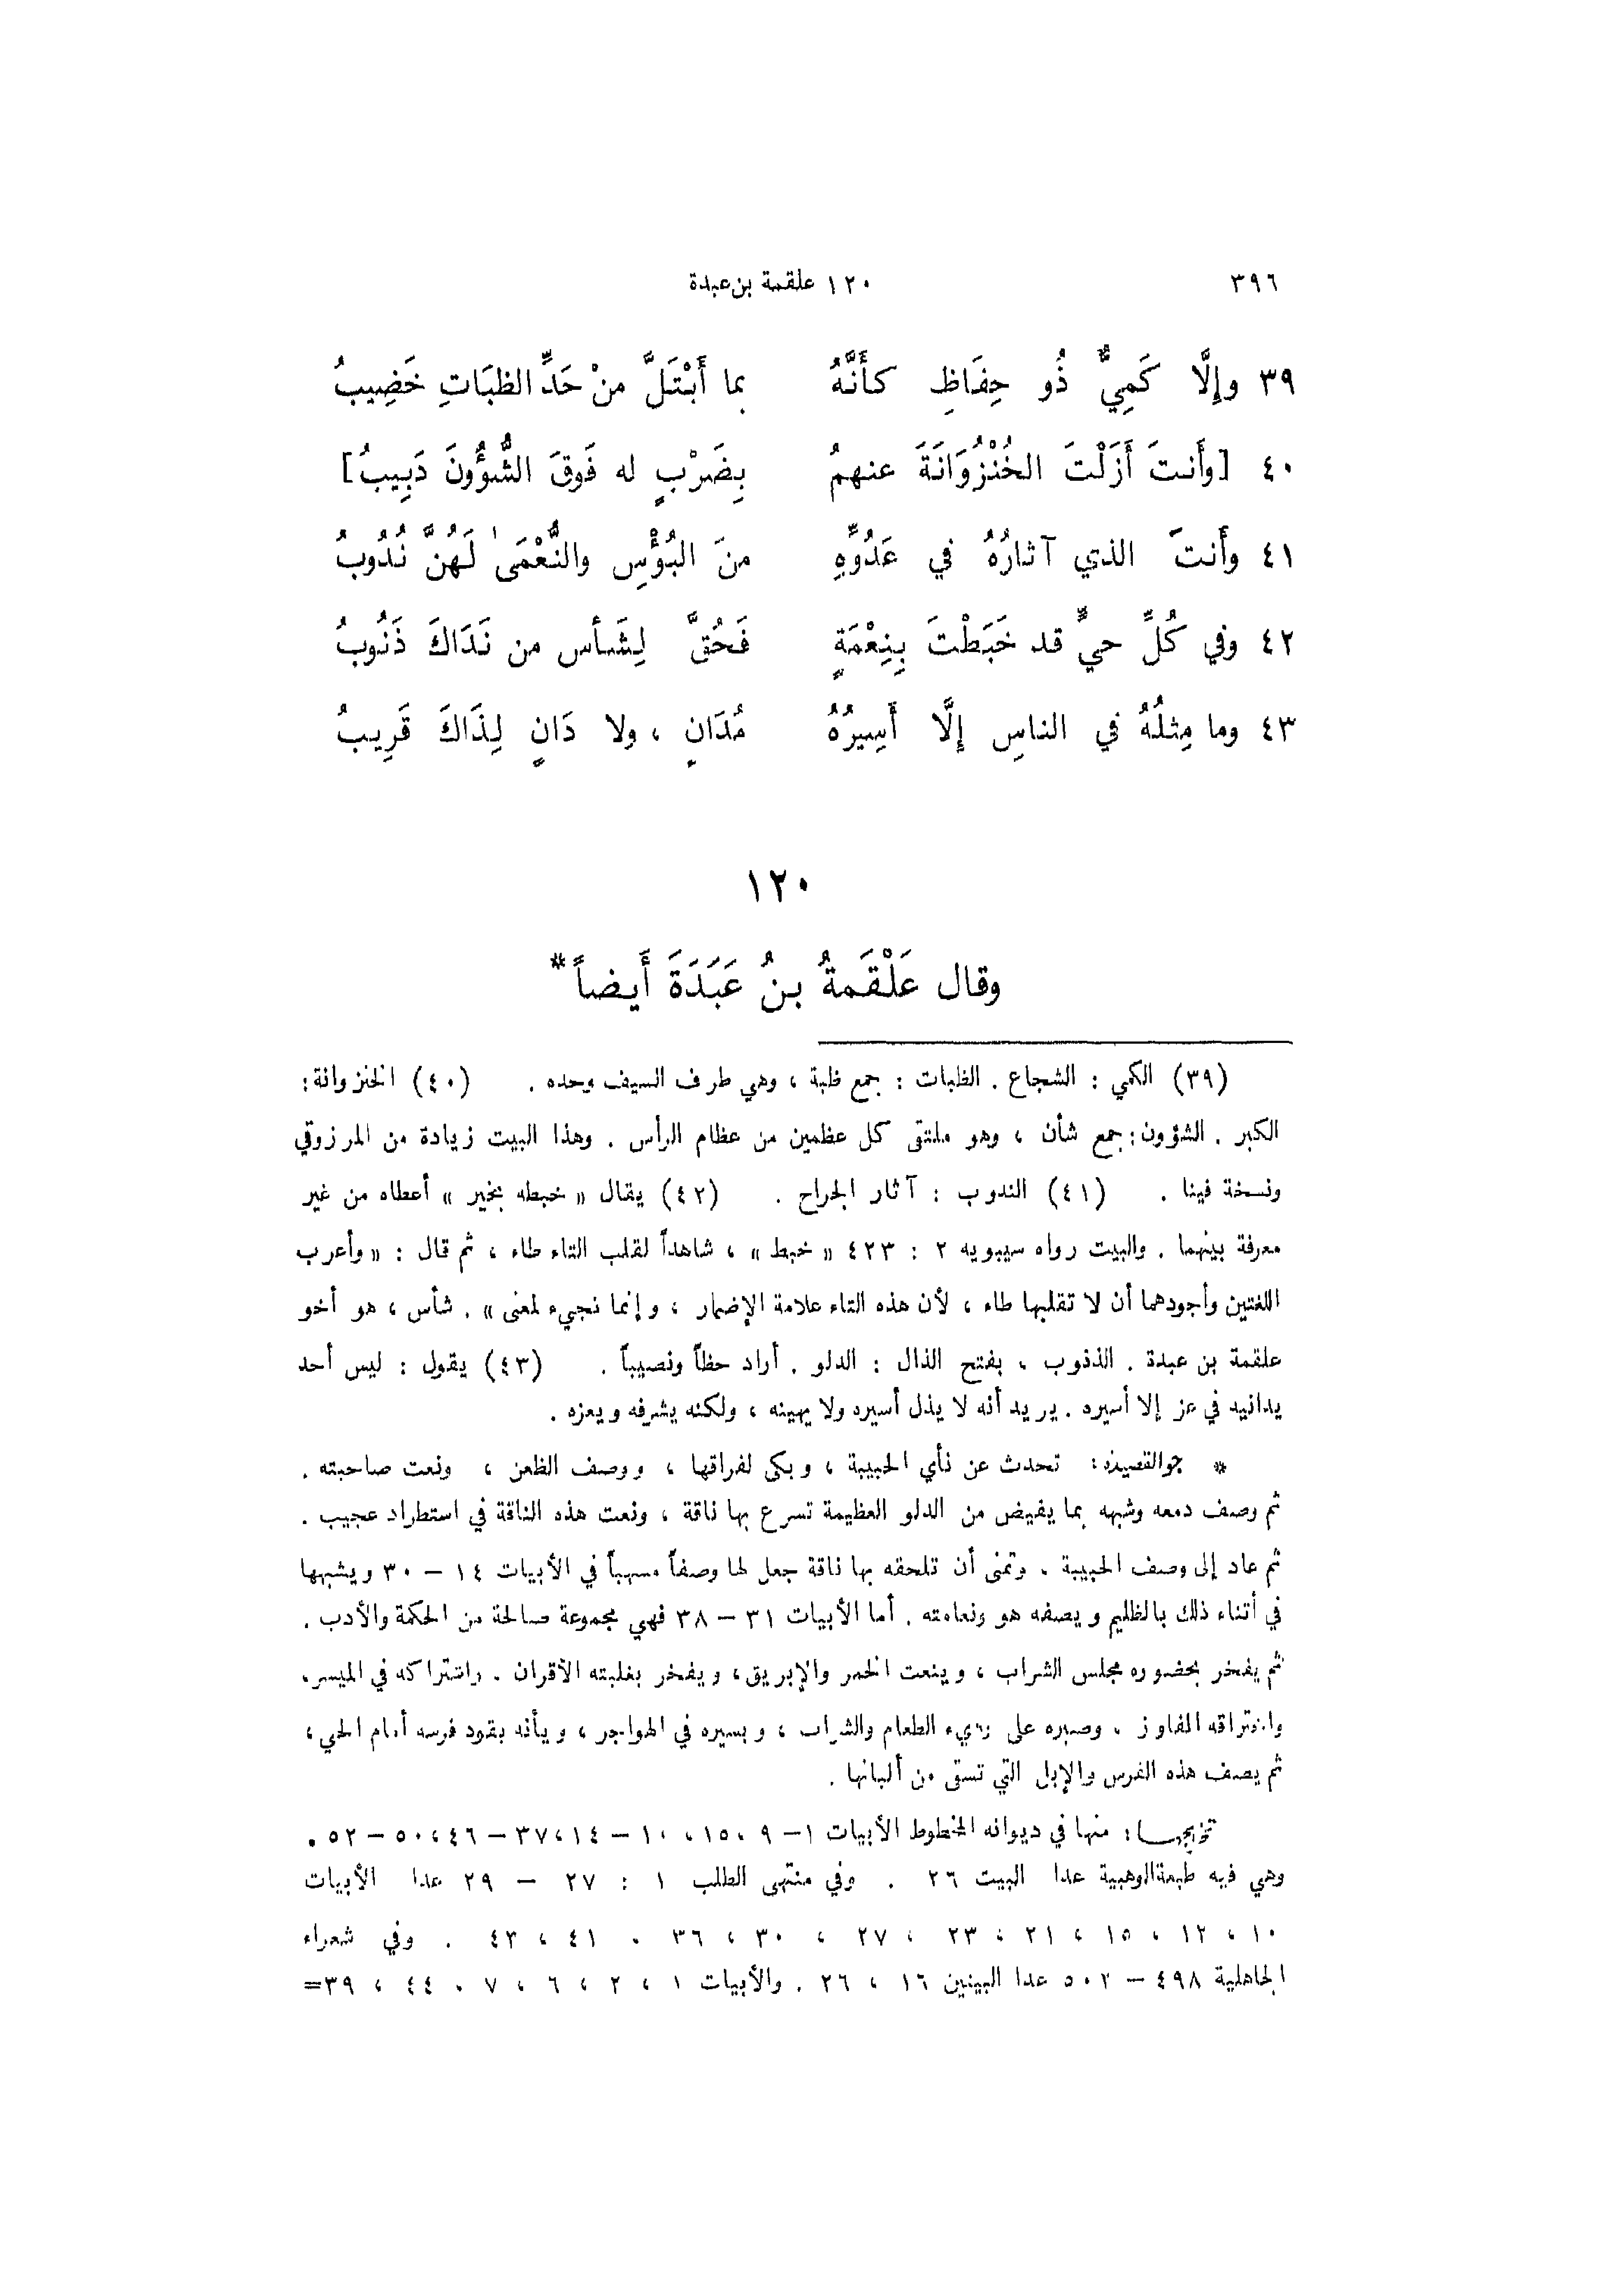 ٣٩٦
١٢٠ علقمة بن عبدة
٣٩ وإِلَّا كَمِيٌّ ذُو حِفَاظٍ كأَنَّهُ بما أَبْتَلَّ منْ حَدِّ الظبَاتِ خَضِيبُ
٤٠ [وأَنتَ أَزَلْتَ الخُنْزُوَانَةَ عنهمُ بِضَرْبٍ له فَوقَ الشُّؤُونَ دَبِيبُ]
٤١ وأَنتَ الذي آثارُهُ في عَدُوِّهِ منَ البُؤْسِ والنُّعْمَىٰ لَهُنَّ نُدُوبُ
٤٢ وفي كُلِّ حيٍّ قد خَبَطْتَ بِنِعْمَةٍ فَحُقَّ لِشَأس من نَدَاكَ ذَنُوبُ
٤٣ وما مِثلُهُ في الناسِ إِلَّا أَسِيرُهُ مُدَانٍ ، ولا دَانٍ لِذَاكَ قَرِيبُ
١٢٠
وقال عَلْقَمةُ بنُ عَبَدَةَ أَيضاً*
(٣٩) الكمي : الشجاع . الظبات : جمع ظبة ، وهي طرف السيف وحده . (٤٠) الخنزوانة :
الكبر . الشؤون : جمع شأن ، وهو ملتقى كل عظمين من عظام الرأس . وهذا البيت زيادة من المرزوقي
ونسخة فينا . (٤١) الندوب : آثار الجراح . (٤٢) يقال « خبطه بخير » أعطاه من غير
معرفة بينهما . والبيت رواه سيبويه ٢ : ٤٢٣ « خبط » ، شاهداً لقلب التاء طاء ، ثم قال : « وأعرب
اللغتين وأجودهما أن لا تقلبها طاء ، لأن هذه التاء علامة الإضمار ، وإنما تجيء لمعنى » . شأس ، هو أخو
علقمة بن عبدة . الذنوب ، بفتح الذال : الدلو . أراد حظاً ونصيباً . (٤٣) يقول : ليس أحد
يدانيه في عز إلا أسيره . يريد أنه لا يذل أسيره ولا يهينه ، ولكنه يشرفه ويعزه .
* جو القصيدة : تحدث عن نأي الحبيبة ، وبكى لفراقها ، ووصف الظعن ، ونعت صاحبته .
ثم وصف دمعه وشبهه بما يفيض من الدلو العظيمة تسرع بها ناقة ، ونعت هذه الناقة في استطراد عجيب .
ثم عاد إلى وصف الحبيبة . وتمنى أن تلحقه بها ناقة جعل لها وصفاً مسهباً في الأبيات ١٤ – ٣٠ ويشبهها
في أثناء ذلك بالظليم ويصفه هو ونعامته . أما الأبيات ٣١ – ٣٨ فهي مجموعة صالحة من الحكمة والأدب .
ثم يفخر بحضوره مجلس الشراب ، وينعت الخمر والإبريق ، ويفخر بغلبته الأقران . واشتراكه في الميسر ،
واختراقه المفاوز . وصبره على رديء الطعام والشراب ، وبسيره في الهواجر ، وبأنه يقود فرسه أمام الحي ،
ثم يصف هذه الفرس والإبل التي تسقى من ألبانها .
تخريجها : منها في ديوانه المخطوط الأبيات ١ – ٩ ، ١٥ ، ١٠ – ١٤ ، ٣٧ – ٤٦ ، ٥٠ – ٥٢ .
وهي فيه طبعة الوهبية عدا البيت ٢٦ . وفي منتهى الطلب ١ : ٢٧ – ٢٩ عدا الأبيات
١٠ ، ١٢ ، ١٥ ، ٢١ ، ٢٣ ، ٢٧ ، ٣٠ ، ٣٦ ، ٤١ ، ٤٣ . وفي شعراء
الجاهلية ٤٩٨ – ٥٠٢ عدا البيتين ١٦ ، ٢٦ . والأبيات ١ ، ٢ ، ٦ ، ٧ ، ٤٤ ، ٣٩=